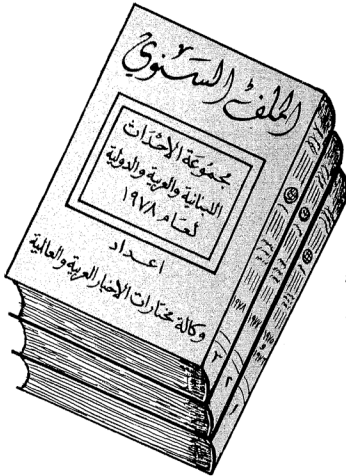 الملف السنوي
مجموعة الأحداث
اللبنانية والعربية والدولية
لعام ١٩٧٨
اعداد
وكالة مختارات الاخبار العربية والعالمية
١٩٧٨
١٩٧٧
٣
٢
١